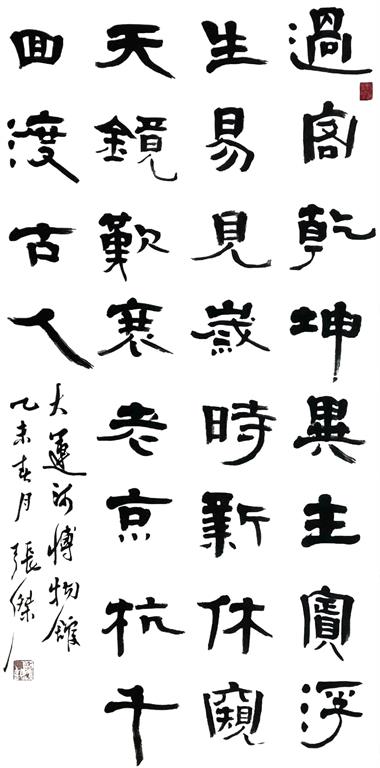 過客乾坤異主賓浮
生易見歲時新休窺
天鏡歎衰老京杭千
回渡古人
大運河博物館
乙未春月張傑